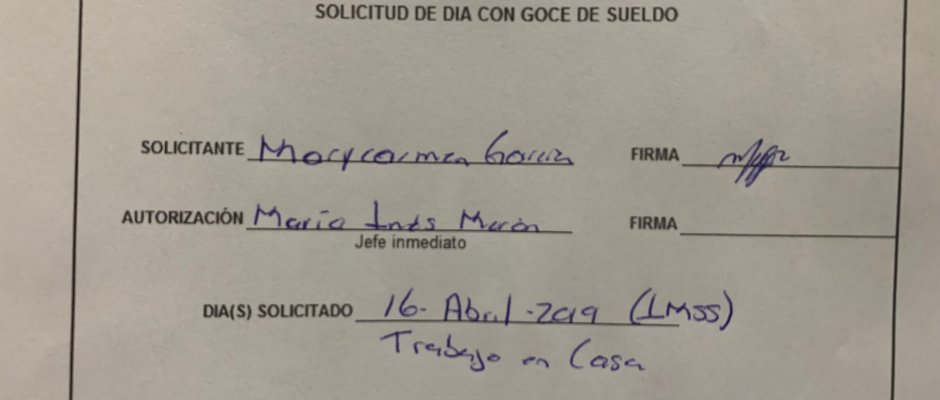 SOLICITUD DE DIA CON GOCE DE SUELDO
SOLICITANTE Marycarmen García FIRMA
AUTORIZACIÓN María Inés Merón FIRMA
Jefe inmediato
DIA(S) SOLICITADO 16-Abril-2019 (IMSS)
Trabajo en Casa